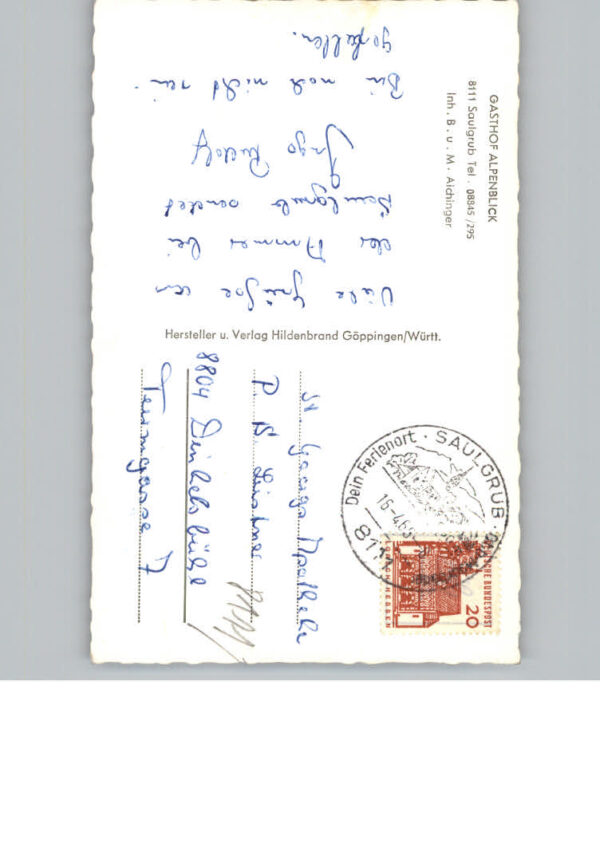 GASTHOF ALPENBLICK
8111 Saulgrub Tel. 08845/295
Inh. B. u. M. Aichinger
Viele Grüße von
der Ammer bei
Saulgrub sendet
Ingo Rudolf
Bin noch nicht rein
gefallen.
Hersteller u. Verlag Hildenbrand Göppingen/Württ.
Dein Ferienort · SAULGRUB ·
8111
DEUTSCHE BUNDESPOST
20
St. Georgs Apotheke
P. B. Leistner
8804 Dinkelsbühl
Turmgasse 7